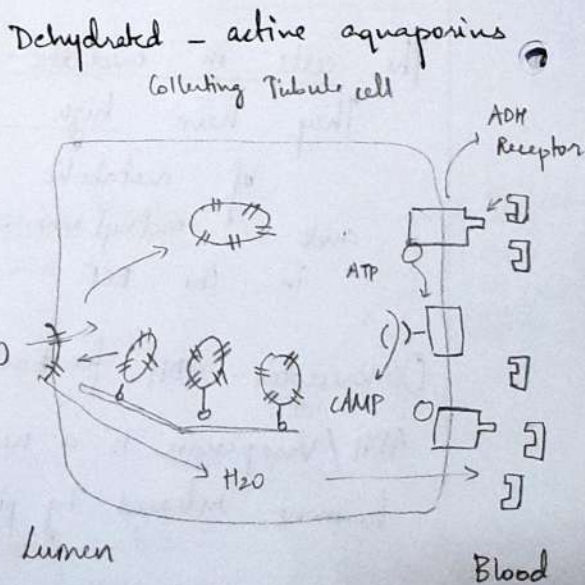 Dehydrated - active aquaporins
Collecting Tubule cell
ADH
Receptor
ATP
CAMP
H2O
Lumen
Blood